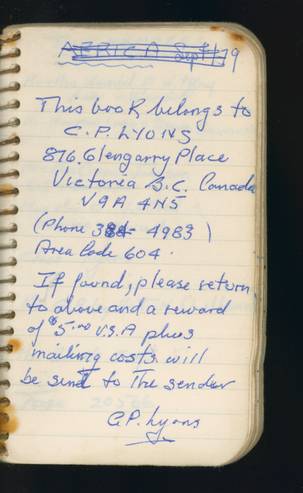 AFRICA Sept 1/79
This book belongs to
C.P. LYONS
876. Glengarry Place
Victoria B.C. Canada
V9A 4N5
(Phone 384- 4983)
Area Code 604.
If found, please return
to above and a reward
of $5.00 U.S.A plus
mailing costs will
be sent to The sender
C.P. Lyons